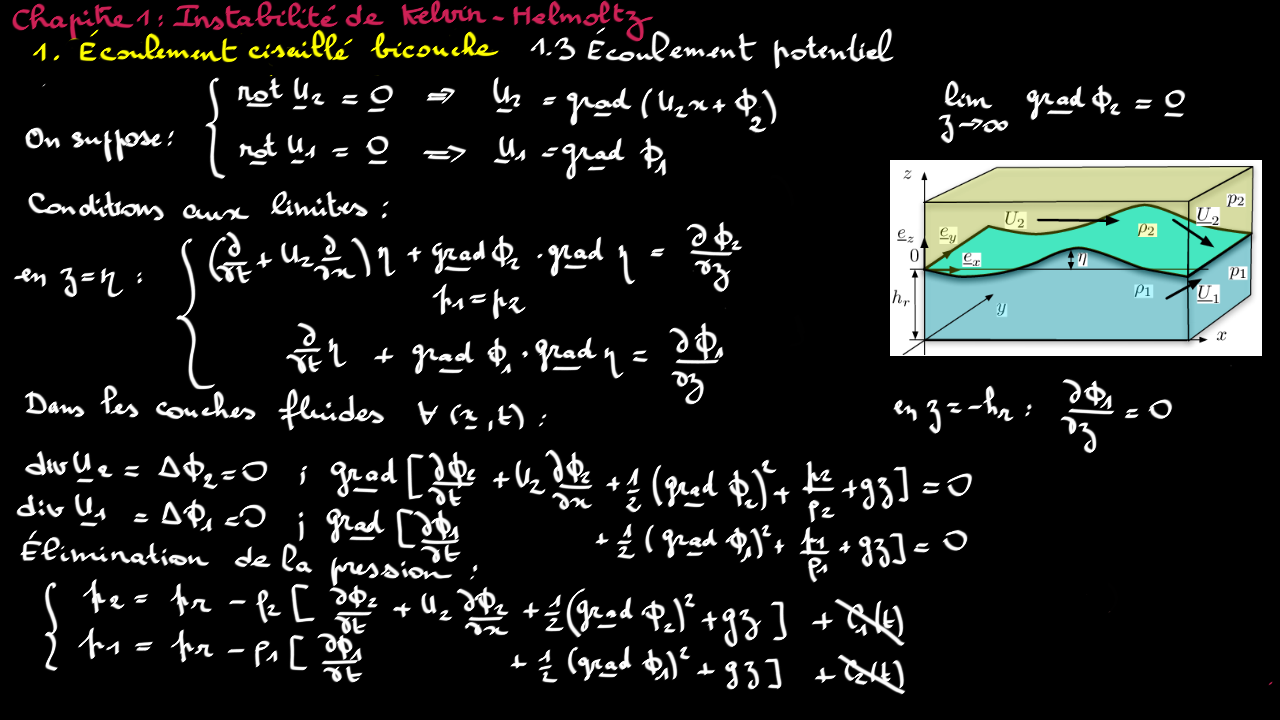 Chapitre 1 : Instabilité de Kelvin - Helmoltz
1. Écoulement cisaillé bicouche 1.3 Écoulement potentiel
On suppose :
rot U₂ = 0 ⇒ U₂ = grad (U₂x + ϕ₂)
lim z→∞ grad ϕ₂ = 0
rot U₁ = 0 ⇒ U₁ = grad ϕ₁
Conditions aux limites :
en z = η :
(∂/∂t + U₂ ∂/∂x) η + grad ϕ₂ . grad η = ∂ϕ₂/∂z
p₁ = p₂
∂/∂t η + grad ϕ₁ . grad η = ∂ϕ₁/∂z
z
U₂
p₂
U₂
ρ₂
e_z
e_y
0
e_x
η
p₁
ρ₁
U₁
h_r
y
x
en z = -h_r : ∂ϕ₁/∂z = 0
Dans les couches fluides ∀ (x, t) :
div U₂ = Δϕ₂ = 0 ; grad [∂ϕ₂/∂t + U₂ ∂ϕ₂/∂x + 1/2 (grad ϕ₂)² + p₂/ρ₂ + gz] = 0
div U₁ = Δϕ₁ = 0 ; grad [∂ϕ₁/∂t + 1/2 (grad ϕ₁)² + p₁/ρ₁ + gz] = 0
Élimination de la pression :
p₂ = p_r - ρ₂ [∂ϕ₂/∂t + U₂ ∂ϕ₂/∂x + 1/2 (grad ϕ₂)² + gz] + C₁(t)
p₁ = p_r - ρ₁ [∂ϕ₁/∂t + 1/2 (grad ϕ₁)² + gz] + C₂(t)